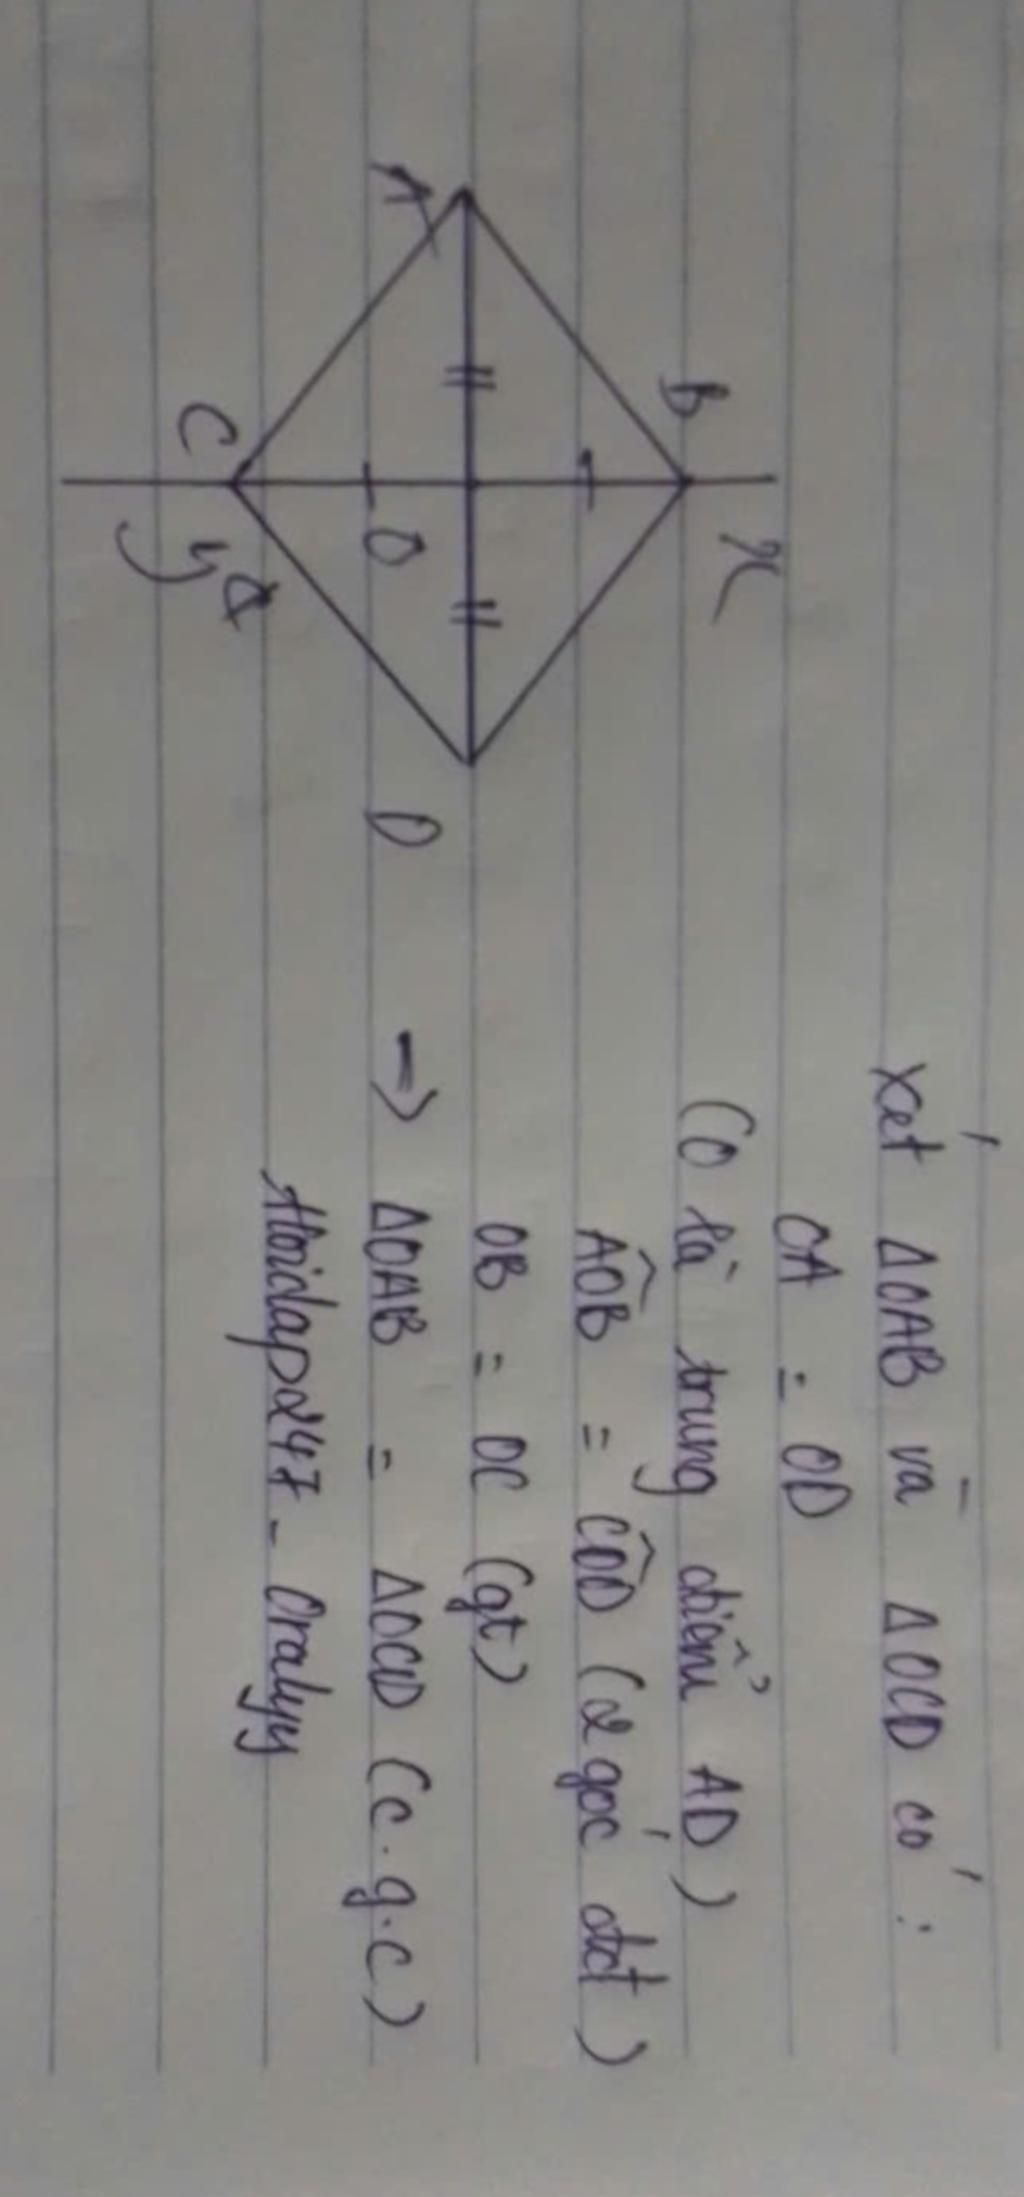 B
x
A
O
D
C
y
Xét ΔOAB và ΔOCD có:
OA = OD
(O là trung điểm AD)
AÔB = CÔD (2 góc đđ)
OB = OC (gt)
→ ΔOAB = ΔOCD (c.g.c)
Hoidap247 - Oralyy